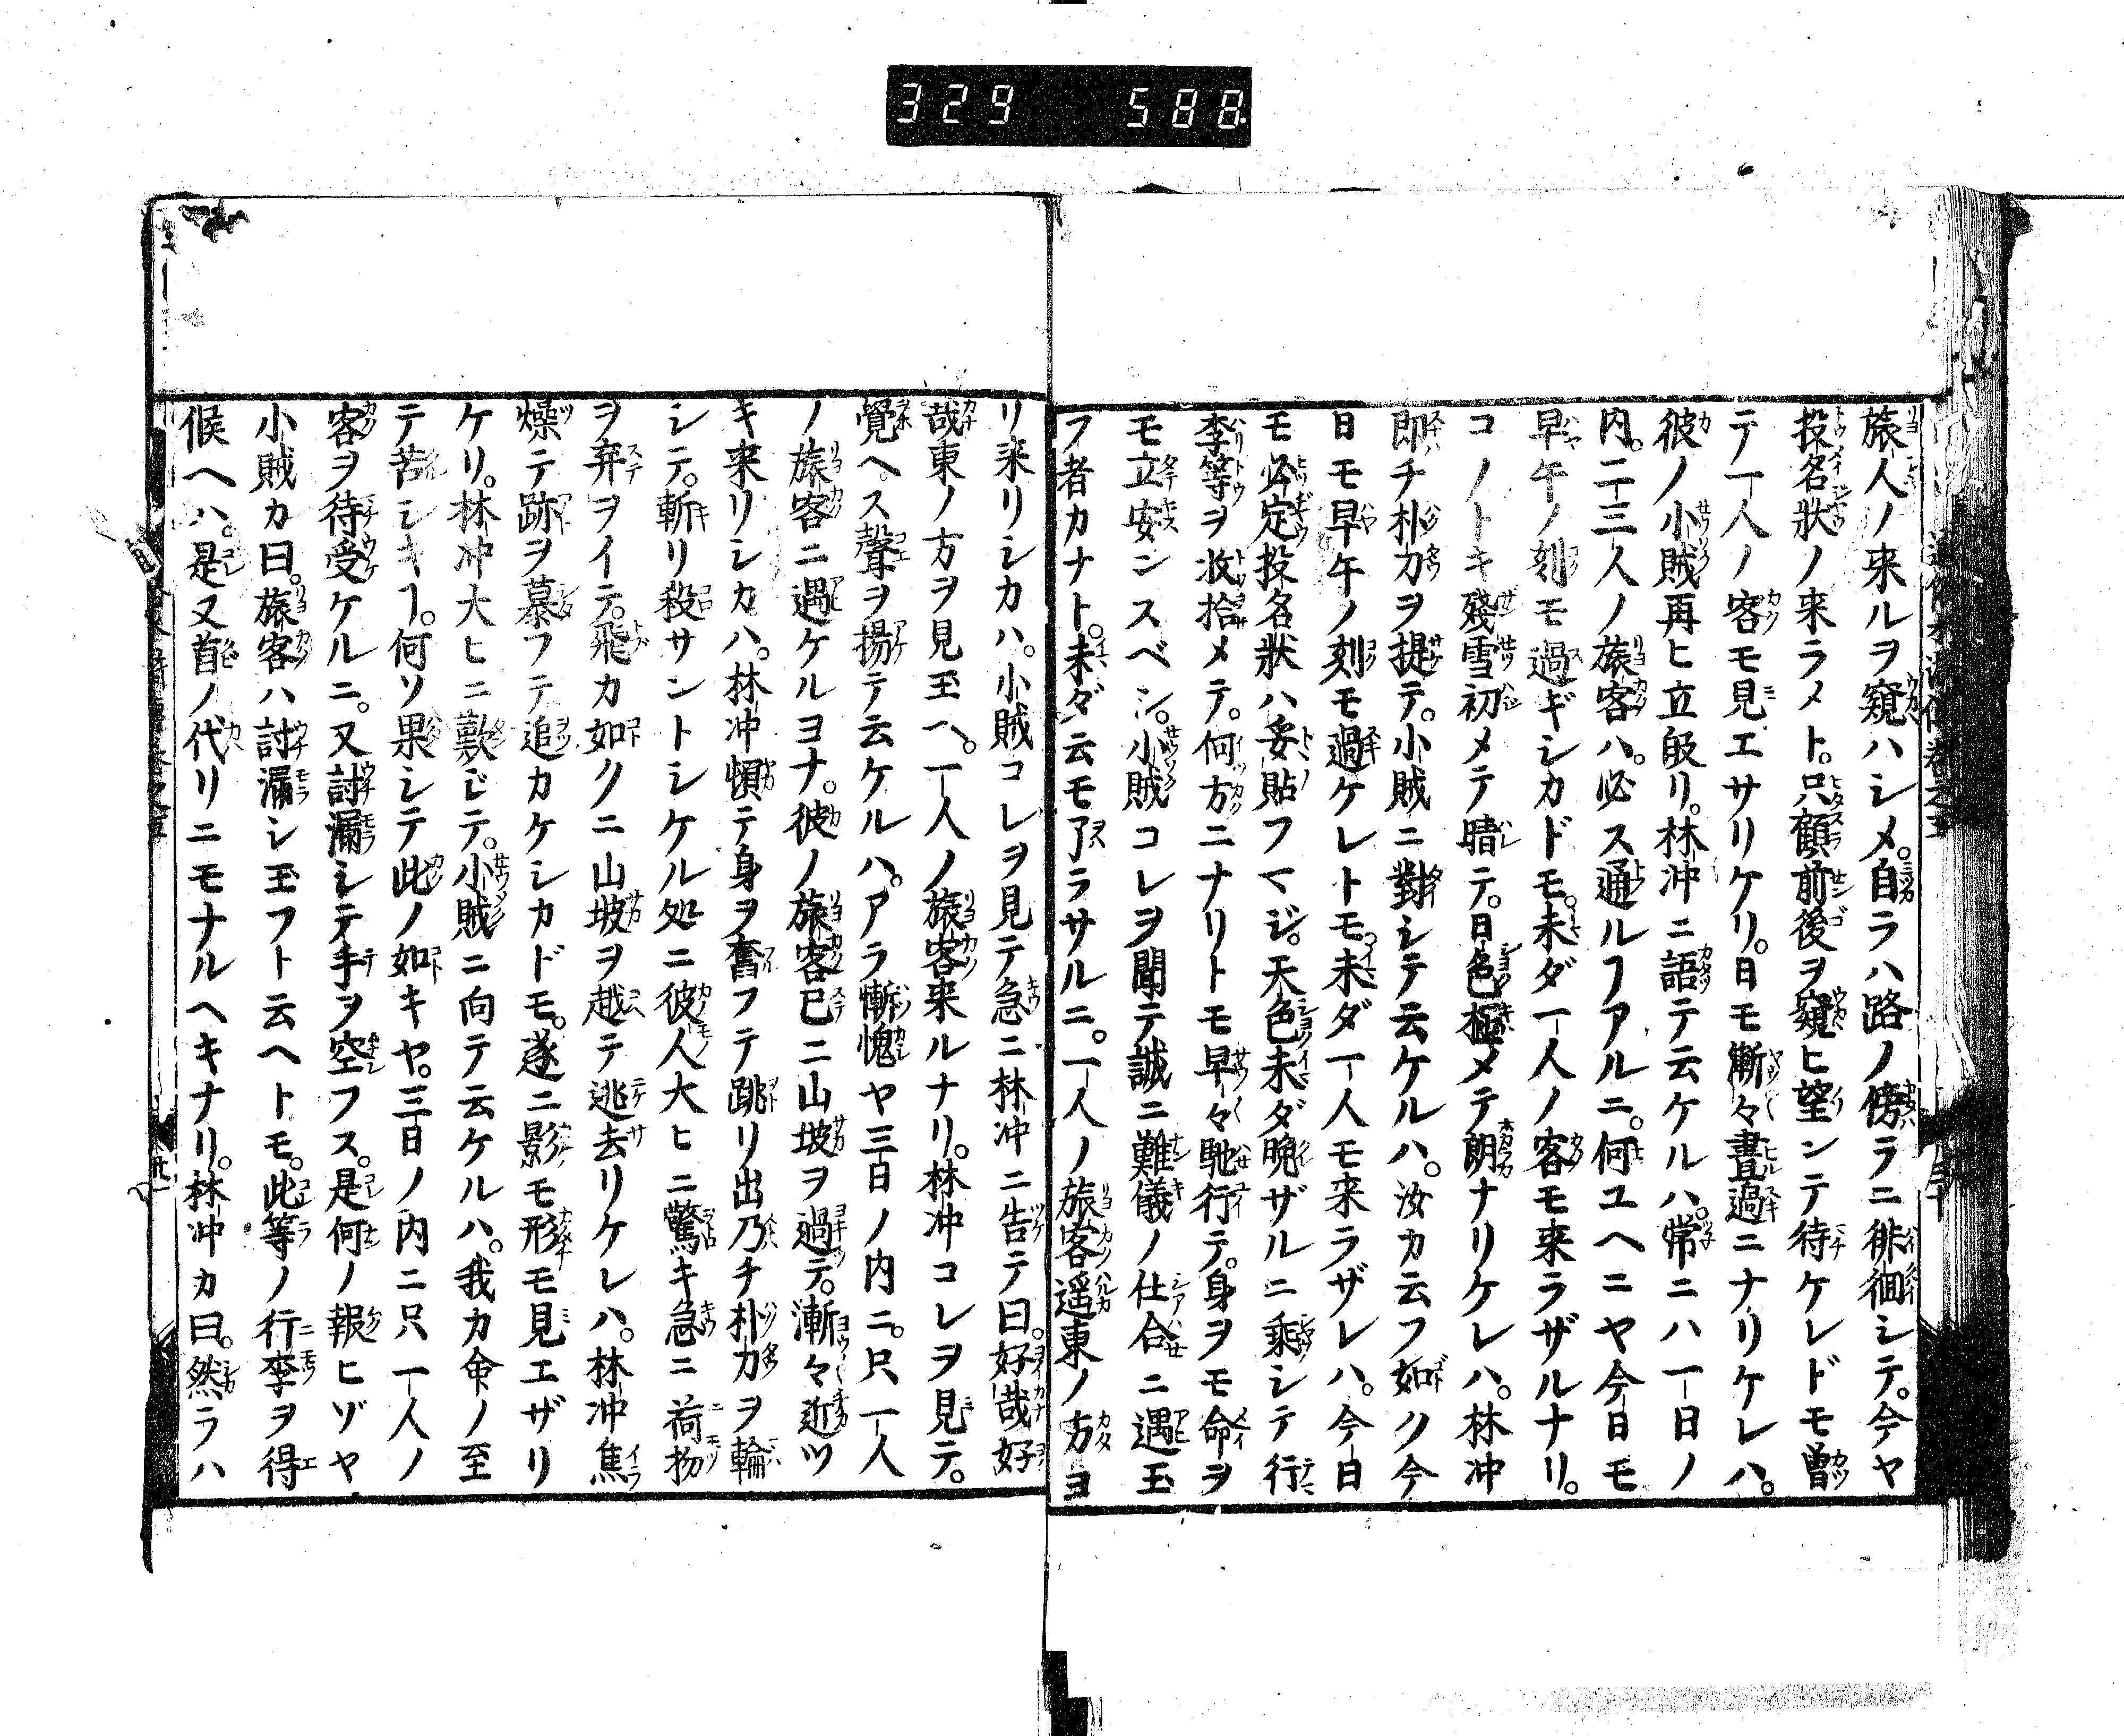 329 588
旅人ノ来ルヲ窺ハシメ。自ラハ路ノ傍ラニ徘徊シテ。今ヤ
投名狀ノ来ラメト。只顧前後ヲ窺ヒ望ンテ待ケレドモ曽
テ一人ノ客モ見エサリケリ。日モ漸々晝過ニナリケレハ。
彼ノ小賊再ヒ立皈リ。林冲ニ語テ云ケルハ。常ニハ一日ノ
内。二三人ノ旅客ハ。必ス通ルヿアルニ。何ユヘニヤ今日モ
早午ノ刻モ過ギシカドモ。未ダ一人ノ客モ来ラザルナリ。
コノトキ殘雪初メテ晴テ。日色極メテ朗ナリケレハ。林冲
即チ朴刀ヲ提テ。小賊ニ對シテ云ケルハ。汝カ云フ如ク今
日モ早午ノ刻モ過ケレトモ。未ダ一人モ来ラザレハ。今日
モ必定投名狀ハ妥貼フマジ。天色未ダ晩ザルニ乘シテ行
李等ヲ收拾メテ。何方ニナリトモ早々馳行テ。身ヲモ命ヲ
モ立安ンスベシ。小賊コレヲ聞テ誠ニ難儀ノ仕合ニ遇玉
フ者カナト。未ダ云モ了ラサルニ。一人ノ旅客遥東ノ方ヨ
リ来リシカハ。小賊コレヲ見テ急ニ林冲ニ告テ曰。好哉好
哉東ノ方ヲ見玉ヘ。一人ノ旅客来ルナリ。林冲コレヲ見テ。
覺ヘス聲ヲ揚テ云ケルハ。アラ慚愧ヤ三日ノ内ニ。只一人
ノ旅客ニ遇ケルヨナ。彼ノ旅客已ニ山坡ヲ過テ。漸々近ツ
キ来リシカハ。林冲頓テ身ヲ奮フテ跳リ出乃チ朴刀ヲ輪
シテ。斬リ殺サントシケル処ニ彼人大ヒニ驚キ急ニ荷物
ヲ弃ヲイテ。飛カ如クニ山坡ヲ越テ逃去リケレハ。林冲焦
燥テ跡ヲ慕フテ追カケシカドモ。遂ニ影モ形モ見エザリ
ケリ。林冲大ヒニ歎ジテ。小賊ニ向テ云ケルハ。我カ命ノ至
テ苦シキヿ。何ソ果シテ此ノ如キヤ。三日ノ内ニ只一人ノ
客ヲ待受ケルニ。又討漏シテ手ヲ空フス。是何ノ報ヒゾヤ
小賊カ曰。旅客ハ討漏シ玉フト云ヘトモ。此等ノ行李ヲ得
候ヘハ。是又首ノ代リニモナルヘキナリ。林冲カ曰。然ラハ